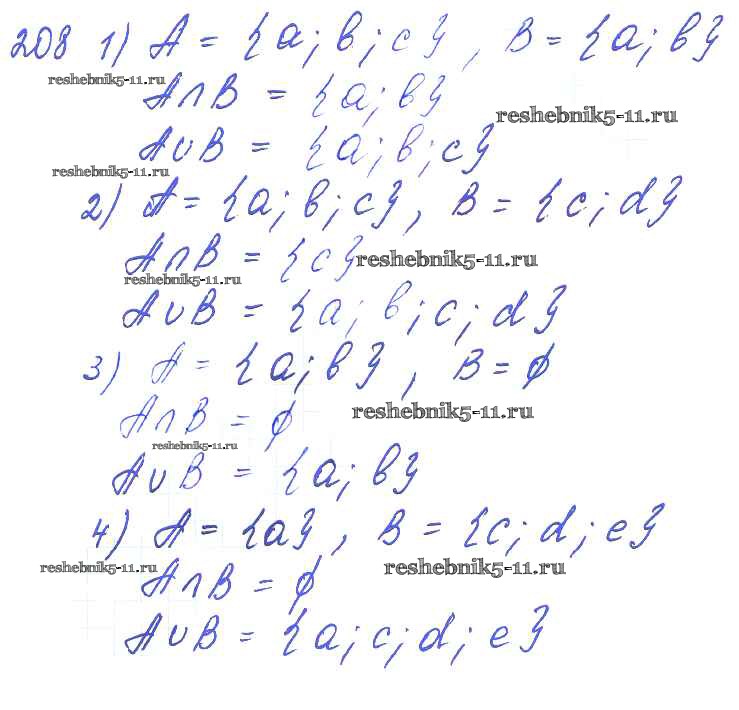 208 1) A = {a; b; c}, B = {a; b}
reshebnik5-11.ru
A∩B = {a; b}
reshebnik5-11.ru
A∪B = {a; b; c}
reshebnik5-11.ru
2) A = {a; b; c}, B = {c; d}
A∩B = {c}
reshebnik5-11.ru
reshebnik5-11.ru
A∪B = {a; b; c; d}
3) A = {a; b}, B = ∅
A∩B = ∅
reshebnik5-11.ru
reshebnik5-11.ru
A∪B = {a; b}
4) A = {a}, B = {c; d; e}
reshebnik5-11.ru
reshebnik5-11.ru
A∩B = ∅
A∪B = {a; c; d; e}